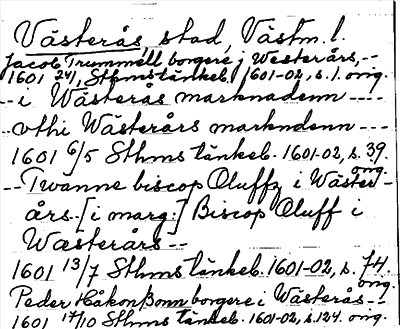 Västerås, stad, Västm. l.
Jacob Trummell borgere j Westerårs, --
1601 24/1, Sthms tänkeb. 1601-02, s. 1. orig.
-- i Wästerås marknadenn ----
-- vthi Wästerårs markndenn ----
1601 6/5 Sthms tänkeb. 1601-02, s. 39. orig.
-- Twanne biscop Oluffz i Wäster-
års. [i marg:] Biscop Oluff i
Wæsterårs --
1601 13/7 Sthms tänkeb. 1601-02, s. 74. orig.
Peder Håkonßonn borgere i Wästerås --
1601 17/10 Sthms tänkeb. 1601-02, s. 124. orig.